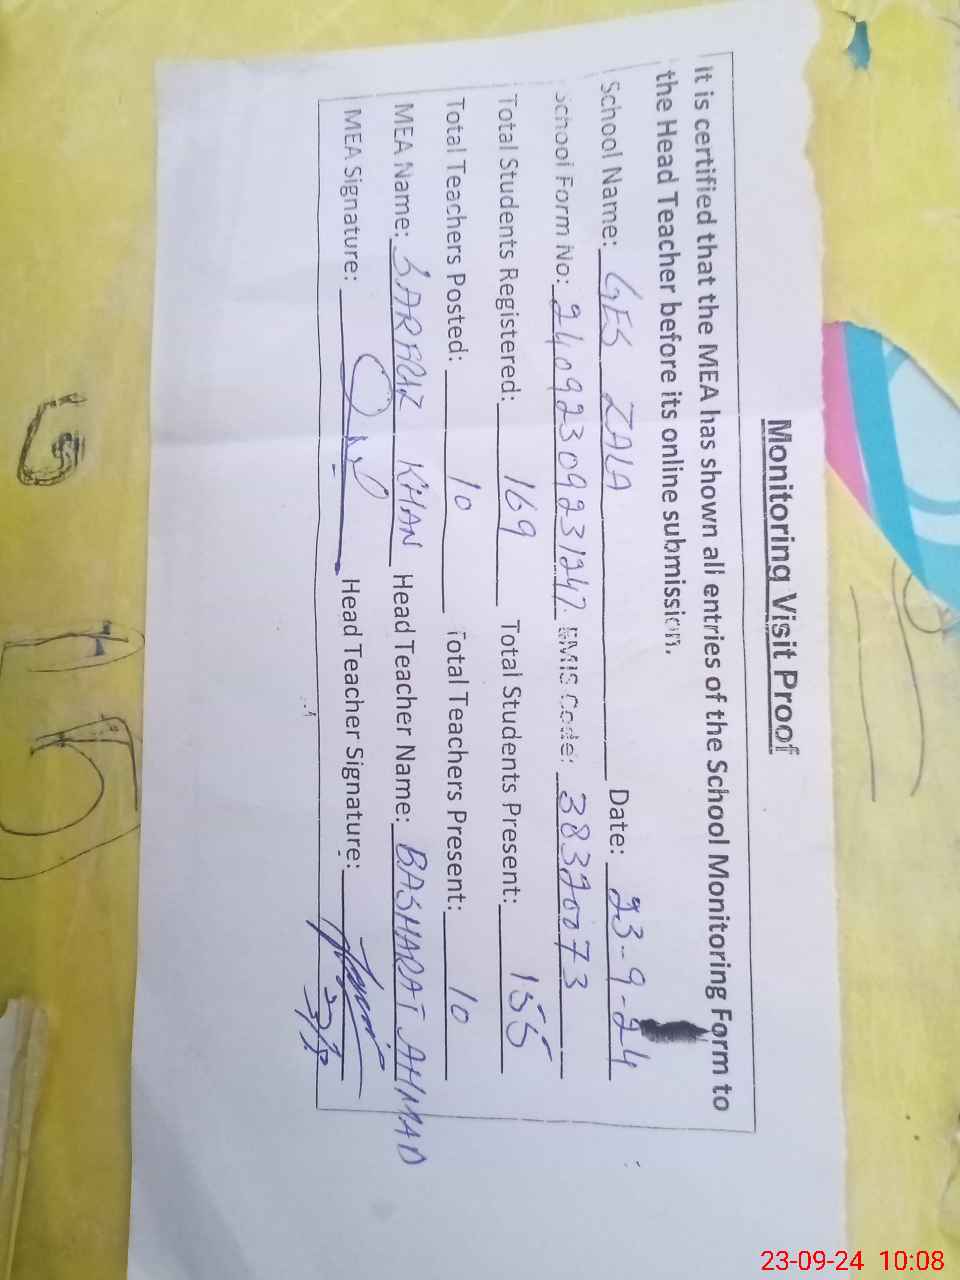 Monitoring Visit Proof
It is certified that the MEA has shown all entries of the School Monitoring Form to
the Head Teacher before its online submission.
School Name: GES ZALA Date: 23-9-24
School Form No: 24092309231247 EMIS Code: 38320073
Total Students Registered: 169 Total Students Present: 155
Total Teachers Posted: 10 Total Teachers Present: 10
MEA Name: SARFRAZ KHAN Head Teacher Name: BASHARAT AHMAD
MEA Signature: Head Teacher Signature:
G
5
23-09-24 10:08